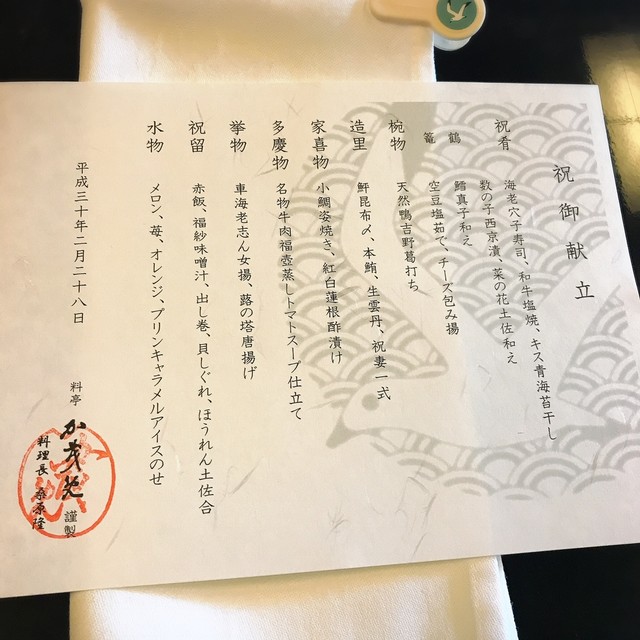 祝御献立
祝肴
海老穴子寿司、和牛塩焼、キス青海苔干し
数の子西京漬、菜の花土佐和え
鶴
鱈真子和え
篭
空豆塩茹で、チーズ包み揚
椀物
天然鴨吉野葛打ち
造里
鮃昆布〆、本鮪、生雲丹、祝妻一式
家喜物
小鯛姿焼き、紅白蓮根酢漬け
多慶物
名物牛肉福壺蒸しトマトスープ仕立て
挙物
車海老志ん女揚、蕗の塔唐揚げ
祝留
赤飯、福紗味噌汁、出し巻、貝しぐれ、ほうれん土佐合
水物
メロン、苺、オレンジ、プリンキャラメルアイスのせ
平成三十年二月二十八日
料亭 か茂免 謹製
料理長 桑原隆